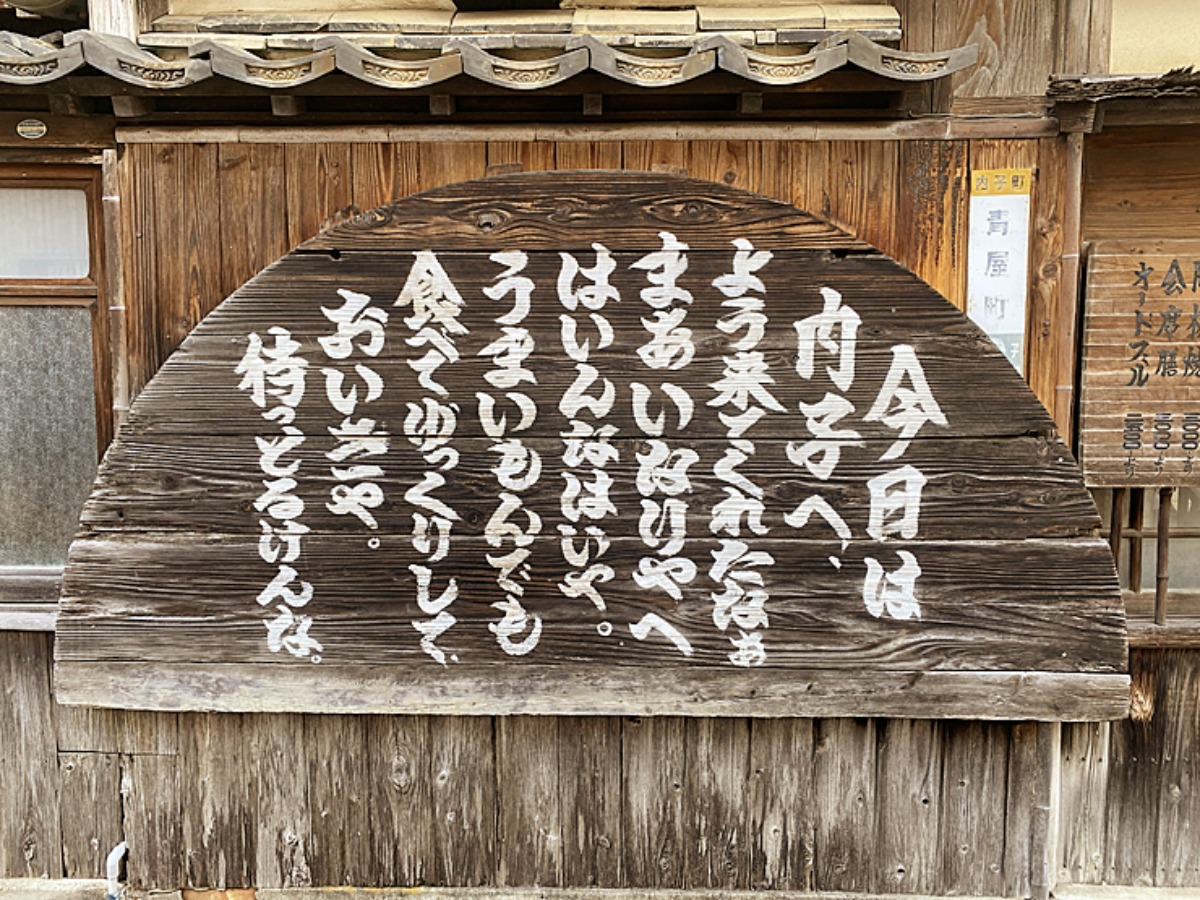 今日は
内子へ、
よう来てくれたなぁ
まあいなりやへ
はいんなはいや。
うまいもんでも
食べてゆっくりして、
おいきや。
待っとるけんな。
内子町
青屋町
会席膳
オードブル